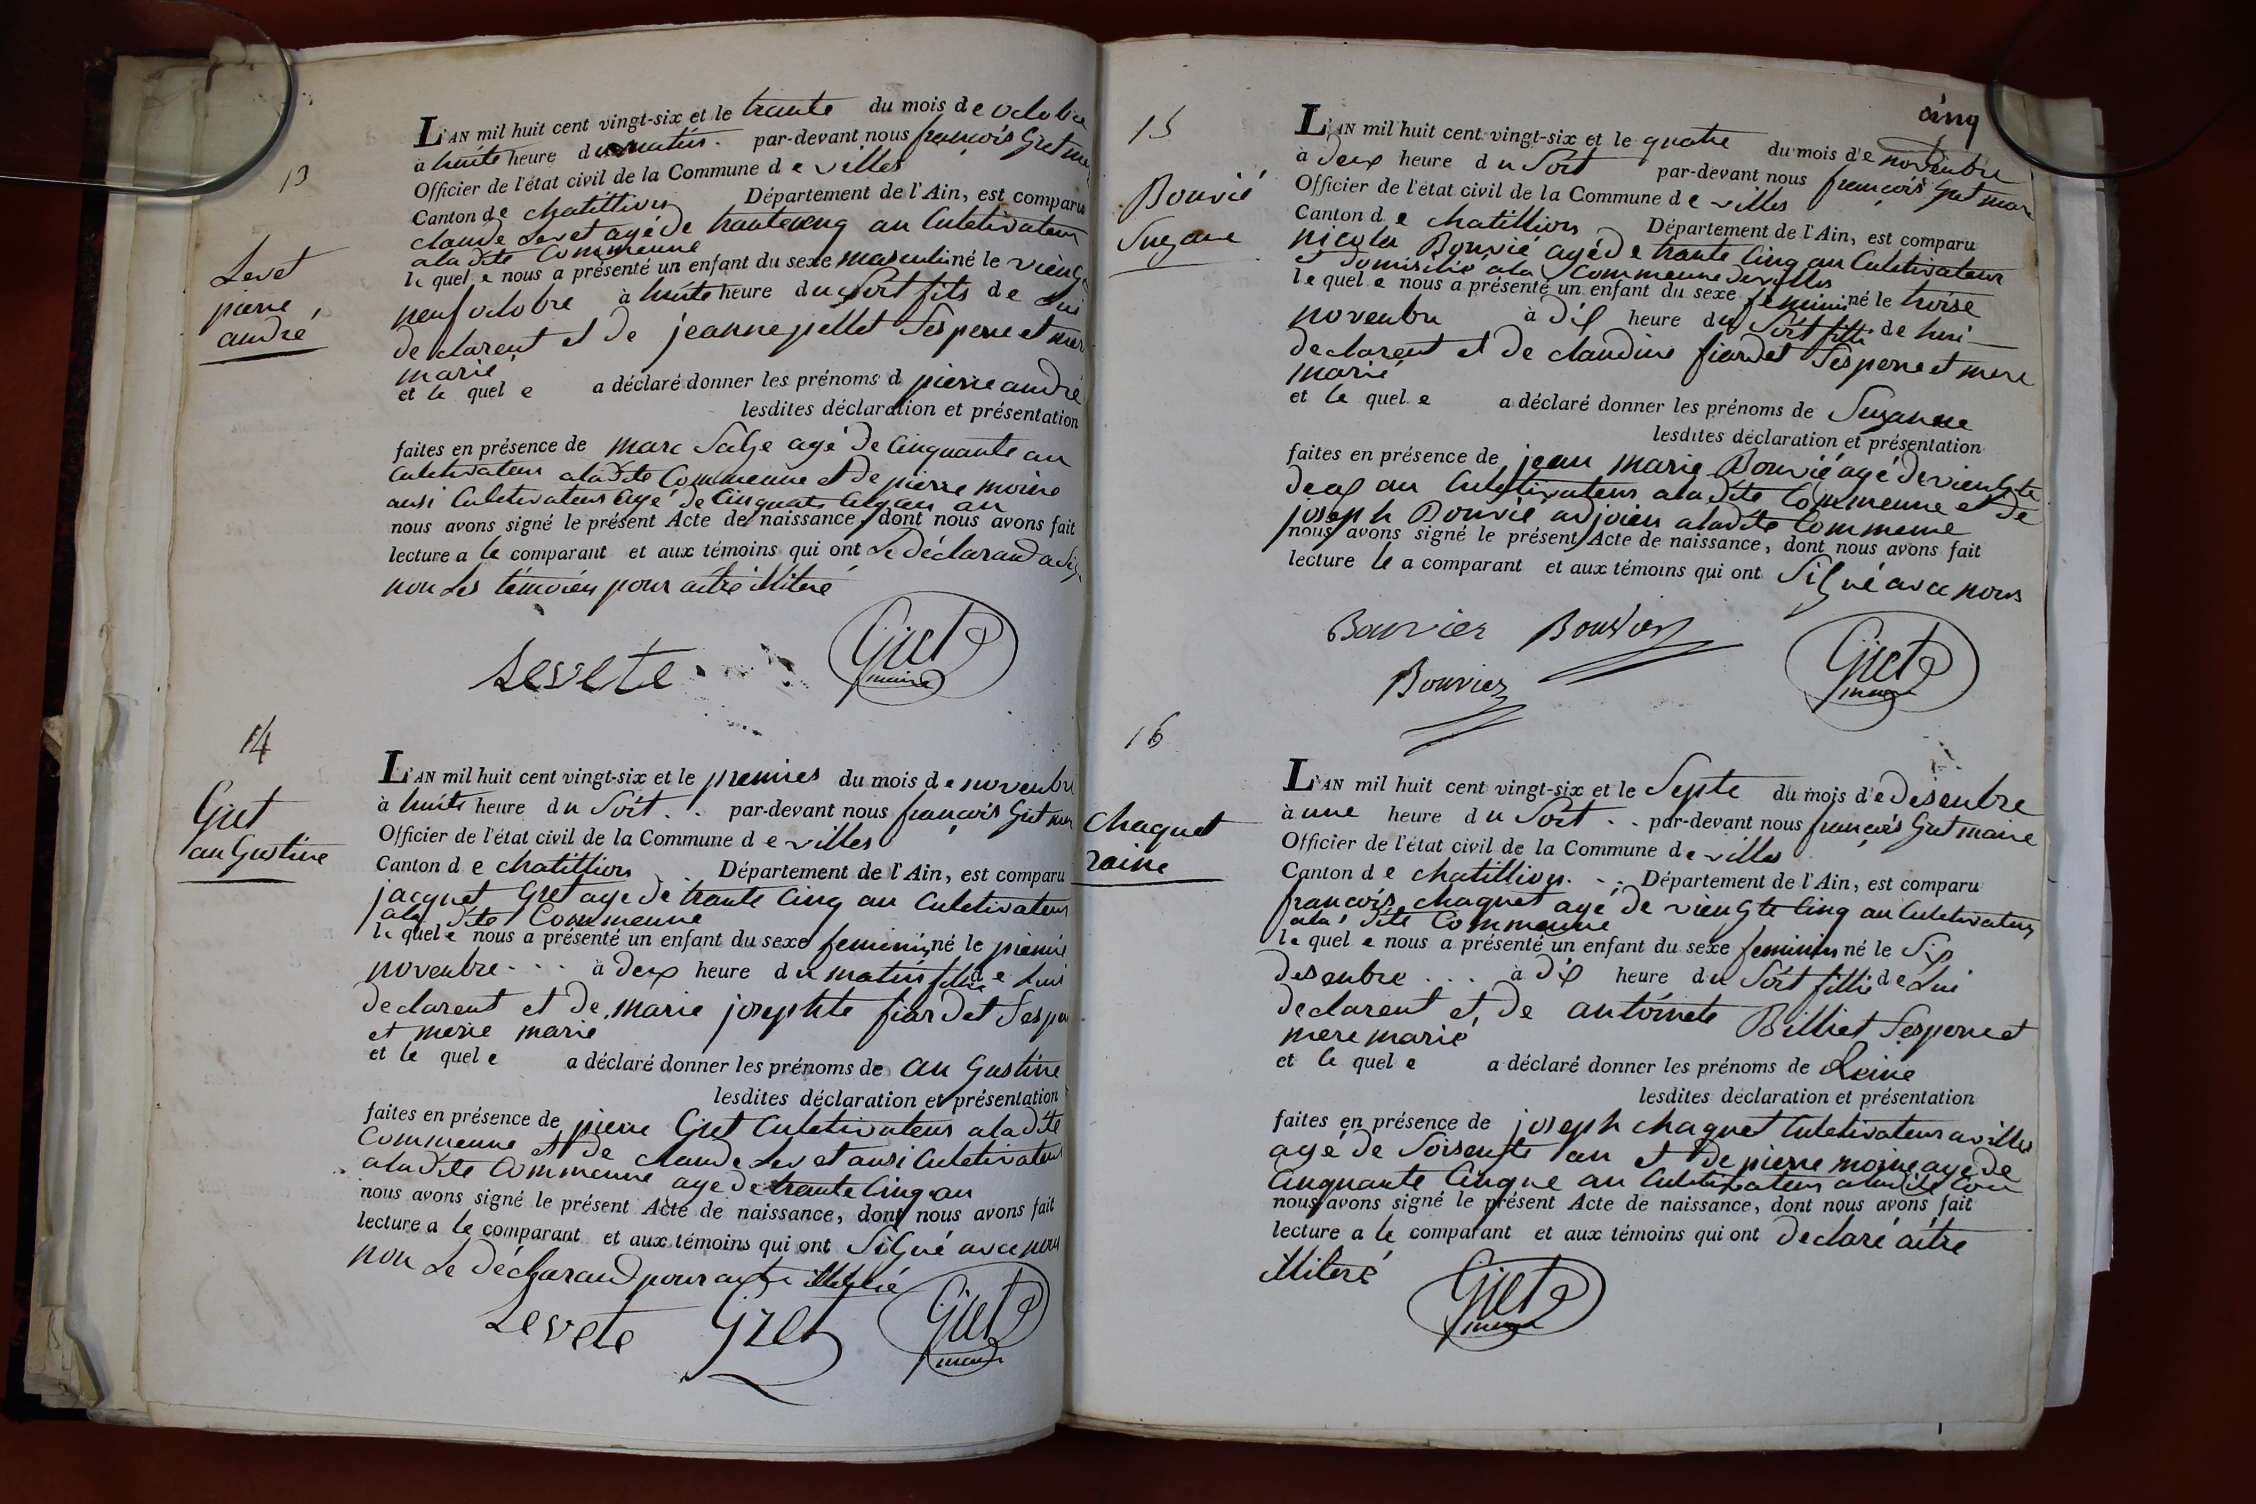 13
Levet
pierre
andré
L'AN mil huit cent vingt-six et le trante du mois de octobre
à huite heure du matin. par-devant nous françois Gret
Officier de l'état civil de la Commune de villes
Canton de chatillion Département de l'Ain, est comparu
claude Levet agé de trante cinq an Culetivateur
a la dite Commeune
le quel e nous a présenté un enfant du sexe masculin né le viengt
neuf octobre à huite heure du Soit fils de Lui
declarent et de jeanne pellet Ses pere et mer
marié
et le quel e a déclaré donner les prénoms d pierre andré
lesdites déclaration et présentation
faites en présence de marc Salze agé de Cinquante an
Culetivateur a la dite Commeune et de pierre moine
ausi Culetivateur agé de Cinquate an
nous avons signé le présent Acte de naissance, dont nous avons fait
lecture a le comparant et aux témoins qui ont Le déclarand a
non Les témoien pour aitre illiteré
Levete Gret maire
14
Gret
au Gustine
L'AN mil huit cent vingt-six et le premier du mois de novenbre
à huite heure du Soit . . par-devant nous françois Gret
Officier de l'état civil de la Commune de villes
Canton de chatillion Département de l'Ain, est comparu
jacquet Gret age de trante Cinq an Culetivateur
a la dite Commeune
le quel e nous a présenté un enfant du sexe feminin né le premie
novenbre . . . à deux heure du matin fillie de Lui
declarent et de marie josephte fiardet Ses per
et mere marie
et le quel e a déclaré donner les prénoms de au Gustine
lesdites déclaration et présentation
faites en présence de pierre Gret Culetivateur a la dite
Commeune et de claude Levet ausi Culetivateur
a la dite Commeune age de trante Cinq an
nous avons signé le présent Acte de naissance, dont nous avons fait
lecture a le comparant et aux témoins qui ont Signé avec nous
non Le déclarand pour aitre
Levete Gret Gret maire
cinq
15
Bouvié
Suzane
L'AN mil huit cent vingt-six et le quatre du mois de novenbre
à deux heure du Soit par-devant nous françois Gret mare
Officier de l'état civil de la Commune de villes
Canton de chatillion Département de l'Ain, est comparu
nicola Bouvié agé de trante Cinq an Culetivateur
et domisilié a la Commeune de villes
le quel e nous a présenté un enfant du sexe feminin né le troise
novenbre à dix heure du Soit fillie de lui
declarent et de claudine fiardet Ses pere et mere
marié
et le quel e a déclaré donner les prénoms de Suzanne
lesdites déclaration et présentation
faites en présence de jean marie Bouvié agé de viengte
deux an Culetivateur a la dite Commeune et de
joseph Bouvié adjoien a la dite Commeune
nous avons signé le présent Acte de naissance, dont nous avons fait
lecture le a comparant et aux témoins qui ont Signé avec nous
Bouvier Bouvier
Bouvier Gret maire
16
chaquet
raine
L'AN mil huit cent vingt-six et le Septe du mois de desenbre
à une heure du Soit . . par-devant nous françois Gret maire
Officier de l'état civil de la Commune de villes
Canton de chatillion . . . Département de l'Ain, est comparu
françois chaquet agé de viengte Cinq an Culetivateur
a la dite Commeune
le quel e nous a présenté un enfant du sexe feminin né le Six
desenbre . . . à dix heure du Soit fillie de Lui
declarent et de antoinete Billiet Ses pere et
mere marié
et le quel e a déclaré donner les prénoms de Reine
lesdites déclaration et présentation
faites en présence de joseph chaquet Culetivateur a villes
agé de Soisente an et de pierre moine age de
Cinquante Cinque an Culetivateur a la dite Com
nous avons signé le présent Acte de naissance, dont nous avons fait
lecture a le comparant et aux témoins qui ont declaré aitre
illiteré
Gret maire